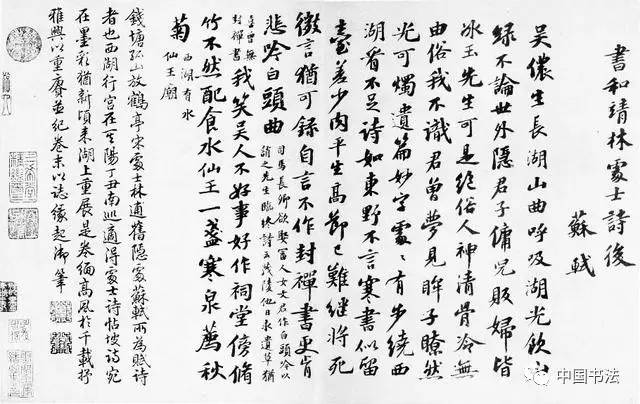 書和靖林處士詩後
蘇軾
吳儂生長湖山曲呼吸湖光飲山
綠不論世外隱君子傭兒販婦皆
冰玉先生可是絕俗人神清骨冷無
由俗我不識君曾夢見眸子瞭然
光可燭遺篇妙字處〻有步繞西
湖看不足詩如東野不言寒書似留
臺差少肉平生高節已難繼將死
微言猶可錄自言不作封禪書更肯
悲吟白頭曲
司馬長卿欲娶富人女文君作白頭吟以
誚之先生臨終詩云茂陵他日求遺草猶
喜曾無
封禪書
我笑吳人不好事好作祠堂傍脩
竹不然配食水仙王一盞寒泉薦秋
菊
西湖有水
仙王廟
錢塘孤山放鶴亭宋處士林逋舊隱處蘇軾所為賦詩
者也西湖行宮在其陽丁丑南巡適得處士詩帖坡詩宛
在墨彩猶新頃來湖上重展是卷緬高風於千載抒
雅興以重賡並紀卷末以誌緣起御筆
中国书法